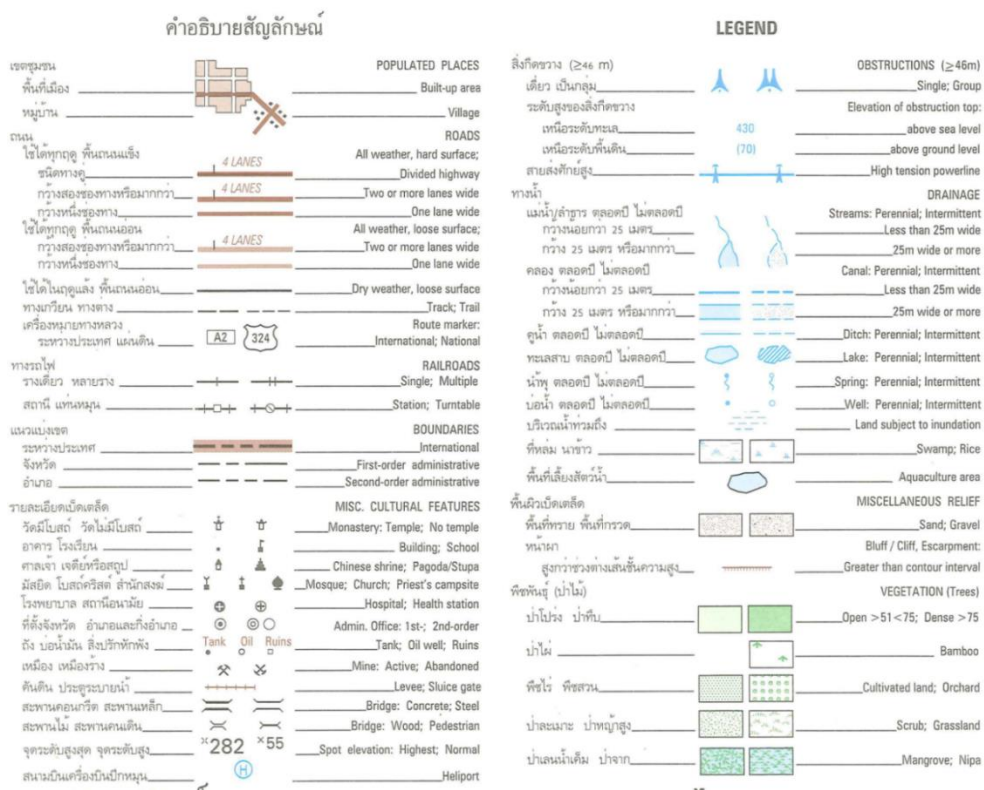 คำอธิบายสัญลักษณ์
เขตชุมชน POPULATED PLACES
พื้นที่เมือง Built-up area
หมู่บ้าน Village
ถนน ROADS
ใช้ได้ทุกฤดู พื้นถนนแข็ง All weather, hard surface;
ชนิดทางคู่ 4 LANES Divided highway
กว้างสองช่องทางหรือมากกว่า 4 LANES Two or more lanes wide
กว้างหนึ่งช่องทาง One lane wide
ใช้ได้ทุกฤดู พื้นถนนอ่อน All weather, loose surface;
กว้างสองช่องทางหรือมากกว่า 4 LANES Two or more lanes wide
กว้างหนึ่งช่องทาง One lane wide
ใช้ได้ในฤดูแล้ง พื้นถนนอ่อน Dry weather, loose surface
ทางเกวียน ทางต่าง Track; Trail
เครื่องหมายทางหลวง Route marker:
ระหว่างประเทศ แผ่นดิน A2 324 International; National
ทางรถไฟ RAILROADS
รางเดี่ยว หลายราง Single; Multiple
สถานี แท่นหมุน Station; Turntable
แนวแบ่งเขต BOUNDARIES
ระหว่างประเทศ International
จังหวัด First-order administrative
อำเภอ Second-order administrative
รายละเอียดเบ็ดเตล็ด MISC. CULTURAL FEATURES
วัดมีโบสถ์ วัดไม่มีโบสถ์ Monastery: Temple; No temple
อาคาร โรงเรียน Building; School
ศาลเจ้า เจดีย์หรือสถูป Chinese shrine; Pagoda/Stupa
มัสยิด โบสถ์คริสต์ สำนักสงฆ์ Mosque; Church; Priest's campsite
โรงพยาบาล สถานีอนามัย Hospital; Health station
ที่ตั้งจังหวัด อำเภอและกิ่งอำเภอ Admin. Office: 1st-; 2nd-order
ถัง บ่อน้ำมัน สิ่งปรักหักพัง Tank Oil Ruins Tank; Oil well; Ruins
เหมือง เหมืองร้าง Mine: Active; Abandoned
คันดิน ประตูระบายน้ำ Levee; Sluice gate
สะพานคอนกรีต สะพานเหล็ก Bridge: Concrete; Steel
สะพานไม้ สะพานคนเดิน Bridge: Wood; Pedestrian
จุดระดับสูงสุด จุดระดับสูง ×282 ×55 Spot elevation: Highest; Normal
สนามบินเครื่องบินปีกหมุน H Heliport
LEGEND
สิ่งกีดขวาง (≥46 m) OBSTRUCTIONS (≥46m)
เดี่ยว เป็นกลุ่ม Single; Group
ระดับสูงของสิ่งกีดขวาง Elevation of obstruction top:
เหนือระดับทะเล 430 above sea level
เหนือระดับพื้นดิน (70) above ground level
สายส่งศักย์สูง High tension powerline
ทางน้ำ DRAINAGE
แม่น้ำ/ลำธาร ตลอดปี ไม่ตลอดปี Streams: Perennial; Intermittent
กว้างน้อยกว่า 25 เมตร Less than 25m wide
กว้าง 25 เมตร หรือมากกว่า 25m wide or more
คลอง ตลอดปี ไม่ตลอดปี Canal: Perennial; Intermittent
กว้างน้อยกว่า 25 เมตร Less than 25m wide
กว้าง 25 เมตร หรือมากกว่า 25m wide or more
คูน้ำ ตลอดปี ไม่ตลอดปี Ditch: Perennial; Intermittent
ทะเลสาบ ตลอดปี ไม่ตลอดปี Lake: Perennial; Intermittent
น้ำพุ ตลอดปี ไม่ตลอดปี Spring: Perennial; Intermittent
บ่อน้ำ ตลอดปี ไม่ตลอดปี Well: Perennial; Intermittent
บริเวณน้ำท่วมถึง Land subject to inundation
ที่หล่ม นาข้าว Swamp; Rice
พื้นที่เลี้ยงสัตว์น้ำ Aquaculture area
พื้นผิวเบ็ดเตล็ด MISCELLANEOUS RELIEF
พื้นที่ทราย พื้นที่กรวด Sand; Gravel
หน้าผา Bluff / Cliff, Escarpment:
สูงกว่าช่วงต่างเส้นชั้นความสูง Greater than contour interval
พืชพันธุ์ (ป่าไม้) VEGETATION (Trees)
ป่าโปร่ง ป่าทึบ Open >51<75; Dense >75
ป่าไผ่ Bamboo
พืชไร่ พืชสวน Cultivated land; Orchard
ป่าละเมาะ ป่าหญ้าสูง Scrub; Grassland
ป่าเลนน้ำเค็ม ป่าจาก Mangrove; Nipa